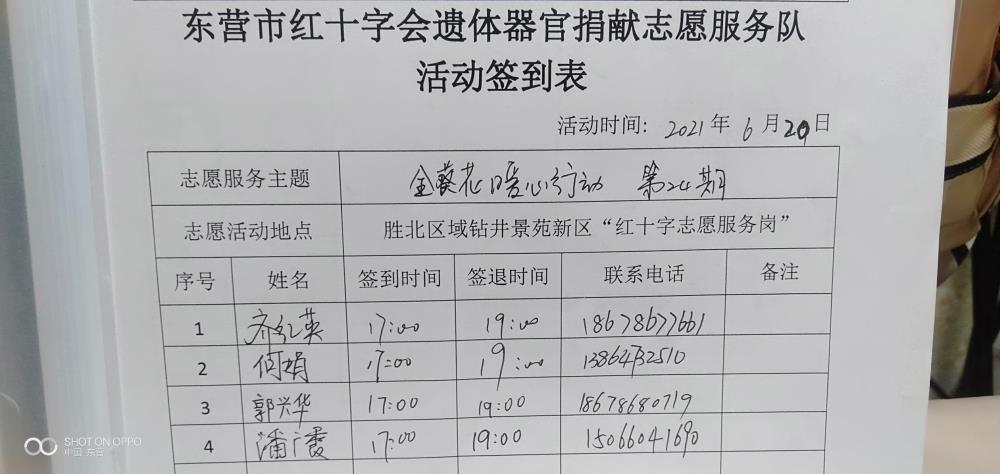 东营市红十字会遗体器官捐献志愿服务队
活动签到表
活动时间: 2021年 6月20日
志愿服务主题 金葵花暖心行动 第24期
志愿活动地点 胜北区域钻井景苑新区“红十字志愿服务岗”
序号 姓名 签到时间 签退时间 联系电话 备注
1 齐红英 17:00 19:00 18678677661
2 何娟 17:00 19:00
3 郭兴华 17:00 19:00 18678680719
4 潘广霞 17:00 19:00 15066041690
SHOT ON OPPO
中国 东营